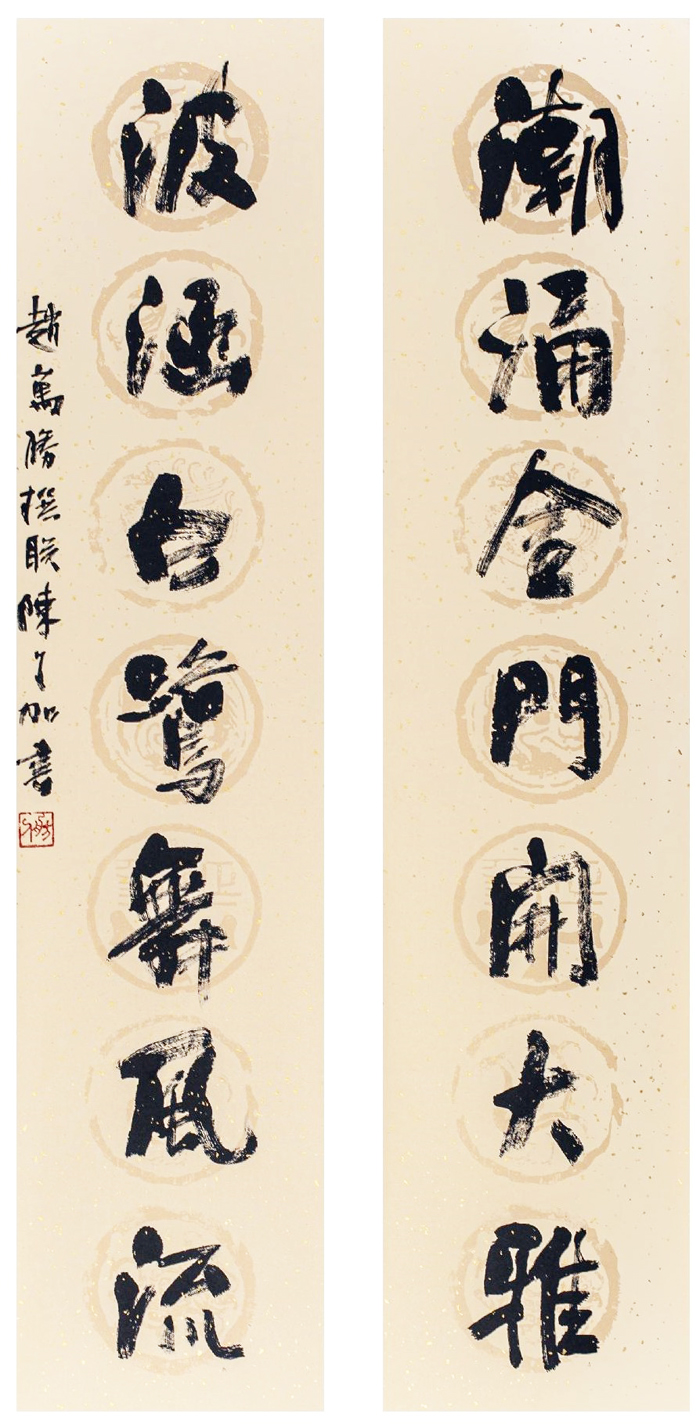 潮涌金門開大雅
波涵白鷺舞風流
趙勝撰联陳加書